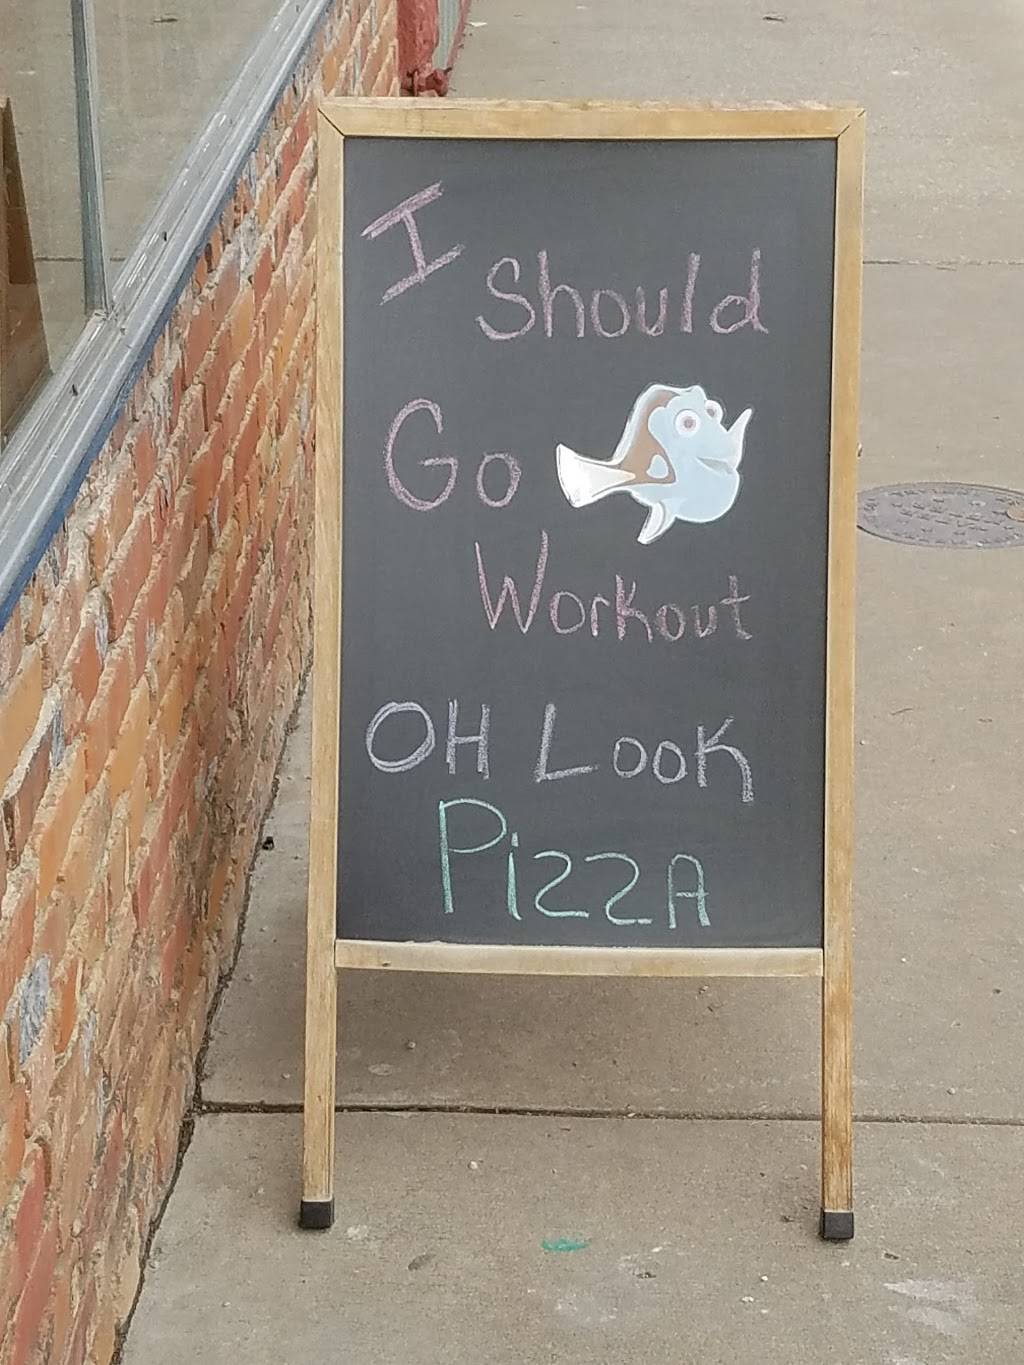 I Should
Go
Workout
OH Look
Pizza